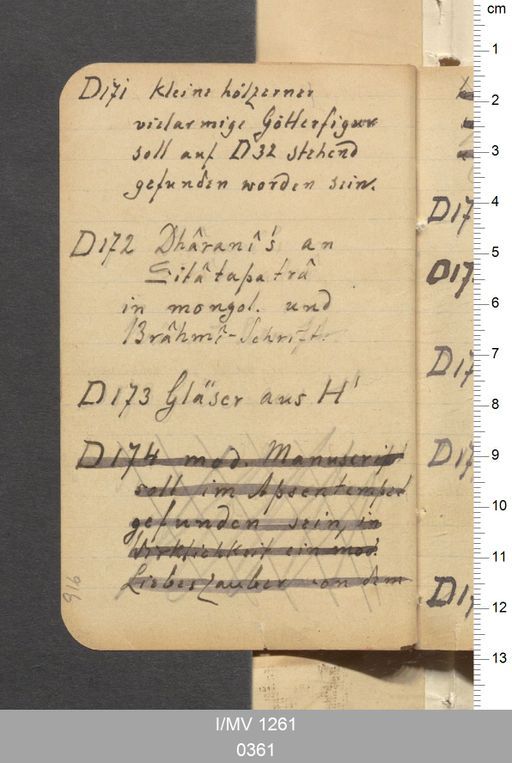 D171 Kleine hölzerner
vielarmige Götterfigur
soll auf D32 stehend
gefunden worden sein.
D172 Dhâranî's an
Sitâtapatrâ
in mongol. und
Brâhmî-Schrift.
D173 Gläser aus H'
D174 mod. Manuscript
soll im Apsentempel
gefunden sein, in
Wirklichkeit ein mod.
Liebeszauber von dem
916
D17
D17
D17
D17
D17
cm
1
2
3
4
5
6
7
8
9
10
11
12
13
I/MV 1261
0361